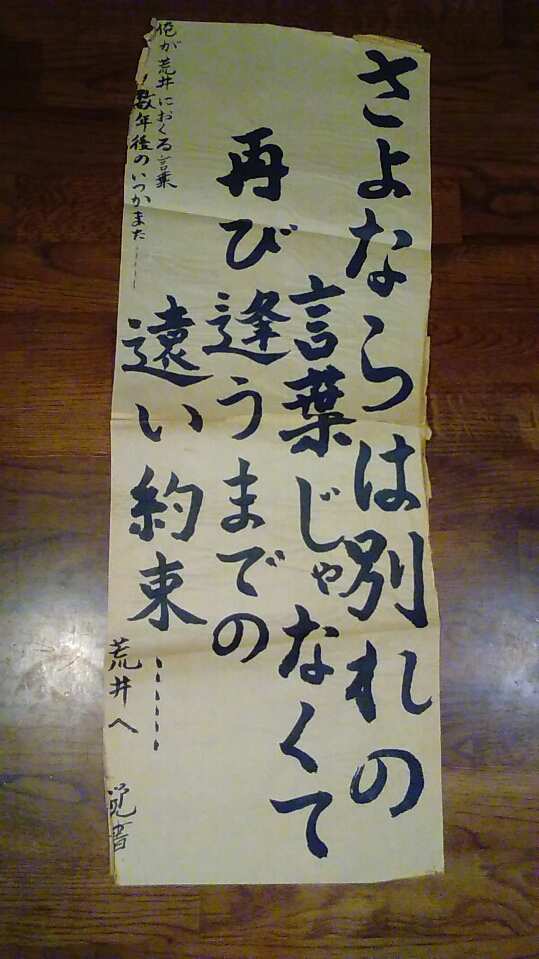 さよならは別れの
言葉じゃなくて
再び逢うまでの
遠い約束……
俺が荒井におくる言葉
数年後のいつかまた……
荒井へ
覚書